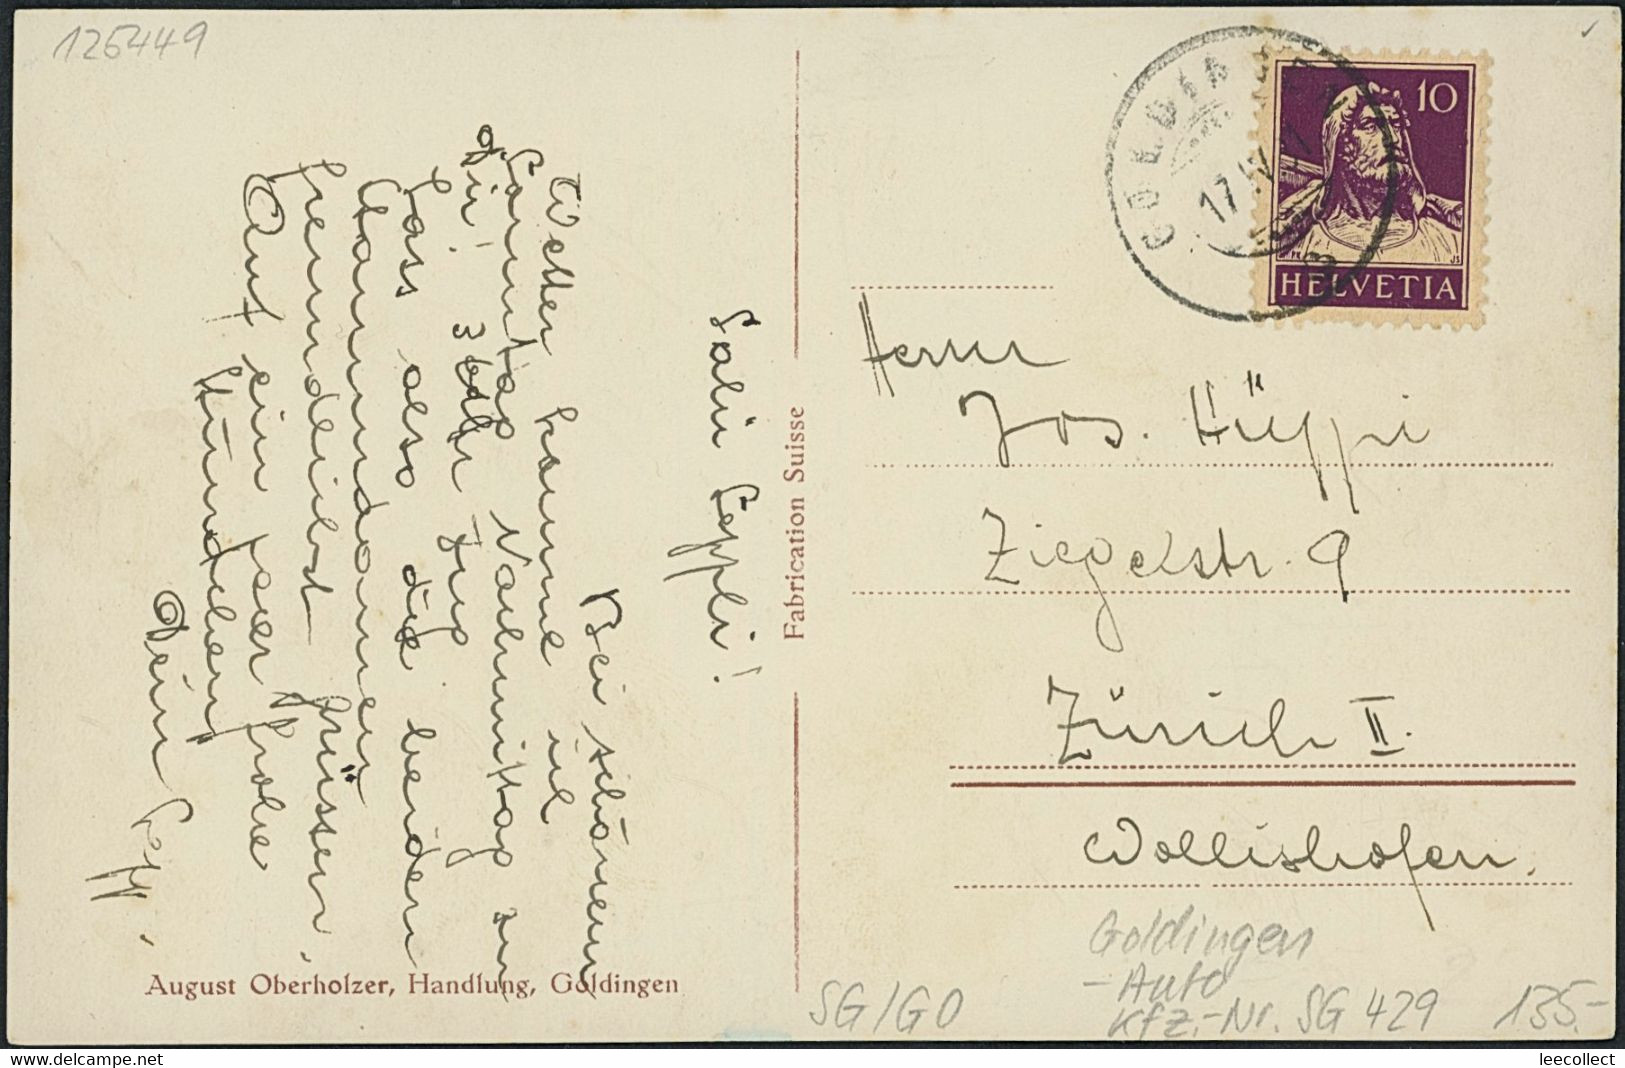 126449
Salü Seppli!
Bei schönem
Wetter komme ich
Sonntag Nachmittag zu
Dir! 3 Uhr Zug
Lass also die beiden
freundeibd grüssen,
Auf ein paar frohe
Stündchen
Dein Sepp.
August Oberholzer, Handlung, Goldingen
Fabrication Suisse
GOLDINGEN
17. IV.
10
HELVETIA
Herrn
Jos. Hüppi
Ziegelstr. 9
Zürich II.
Wollishofen.
Goldingen
- Auto
Kfz.-Nr. SG 429
SG/GO
135.-
leecollect